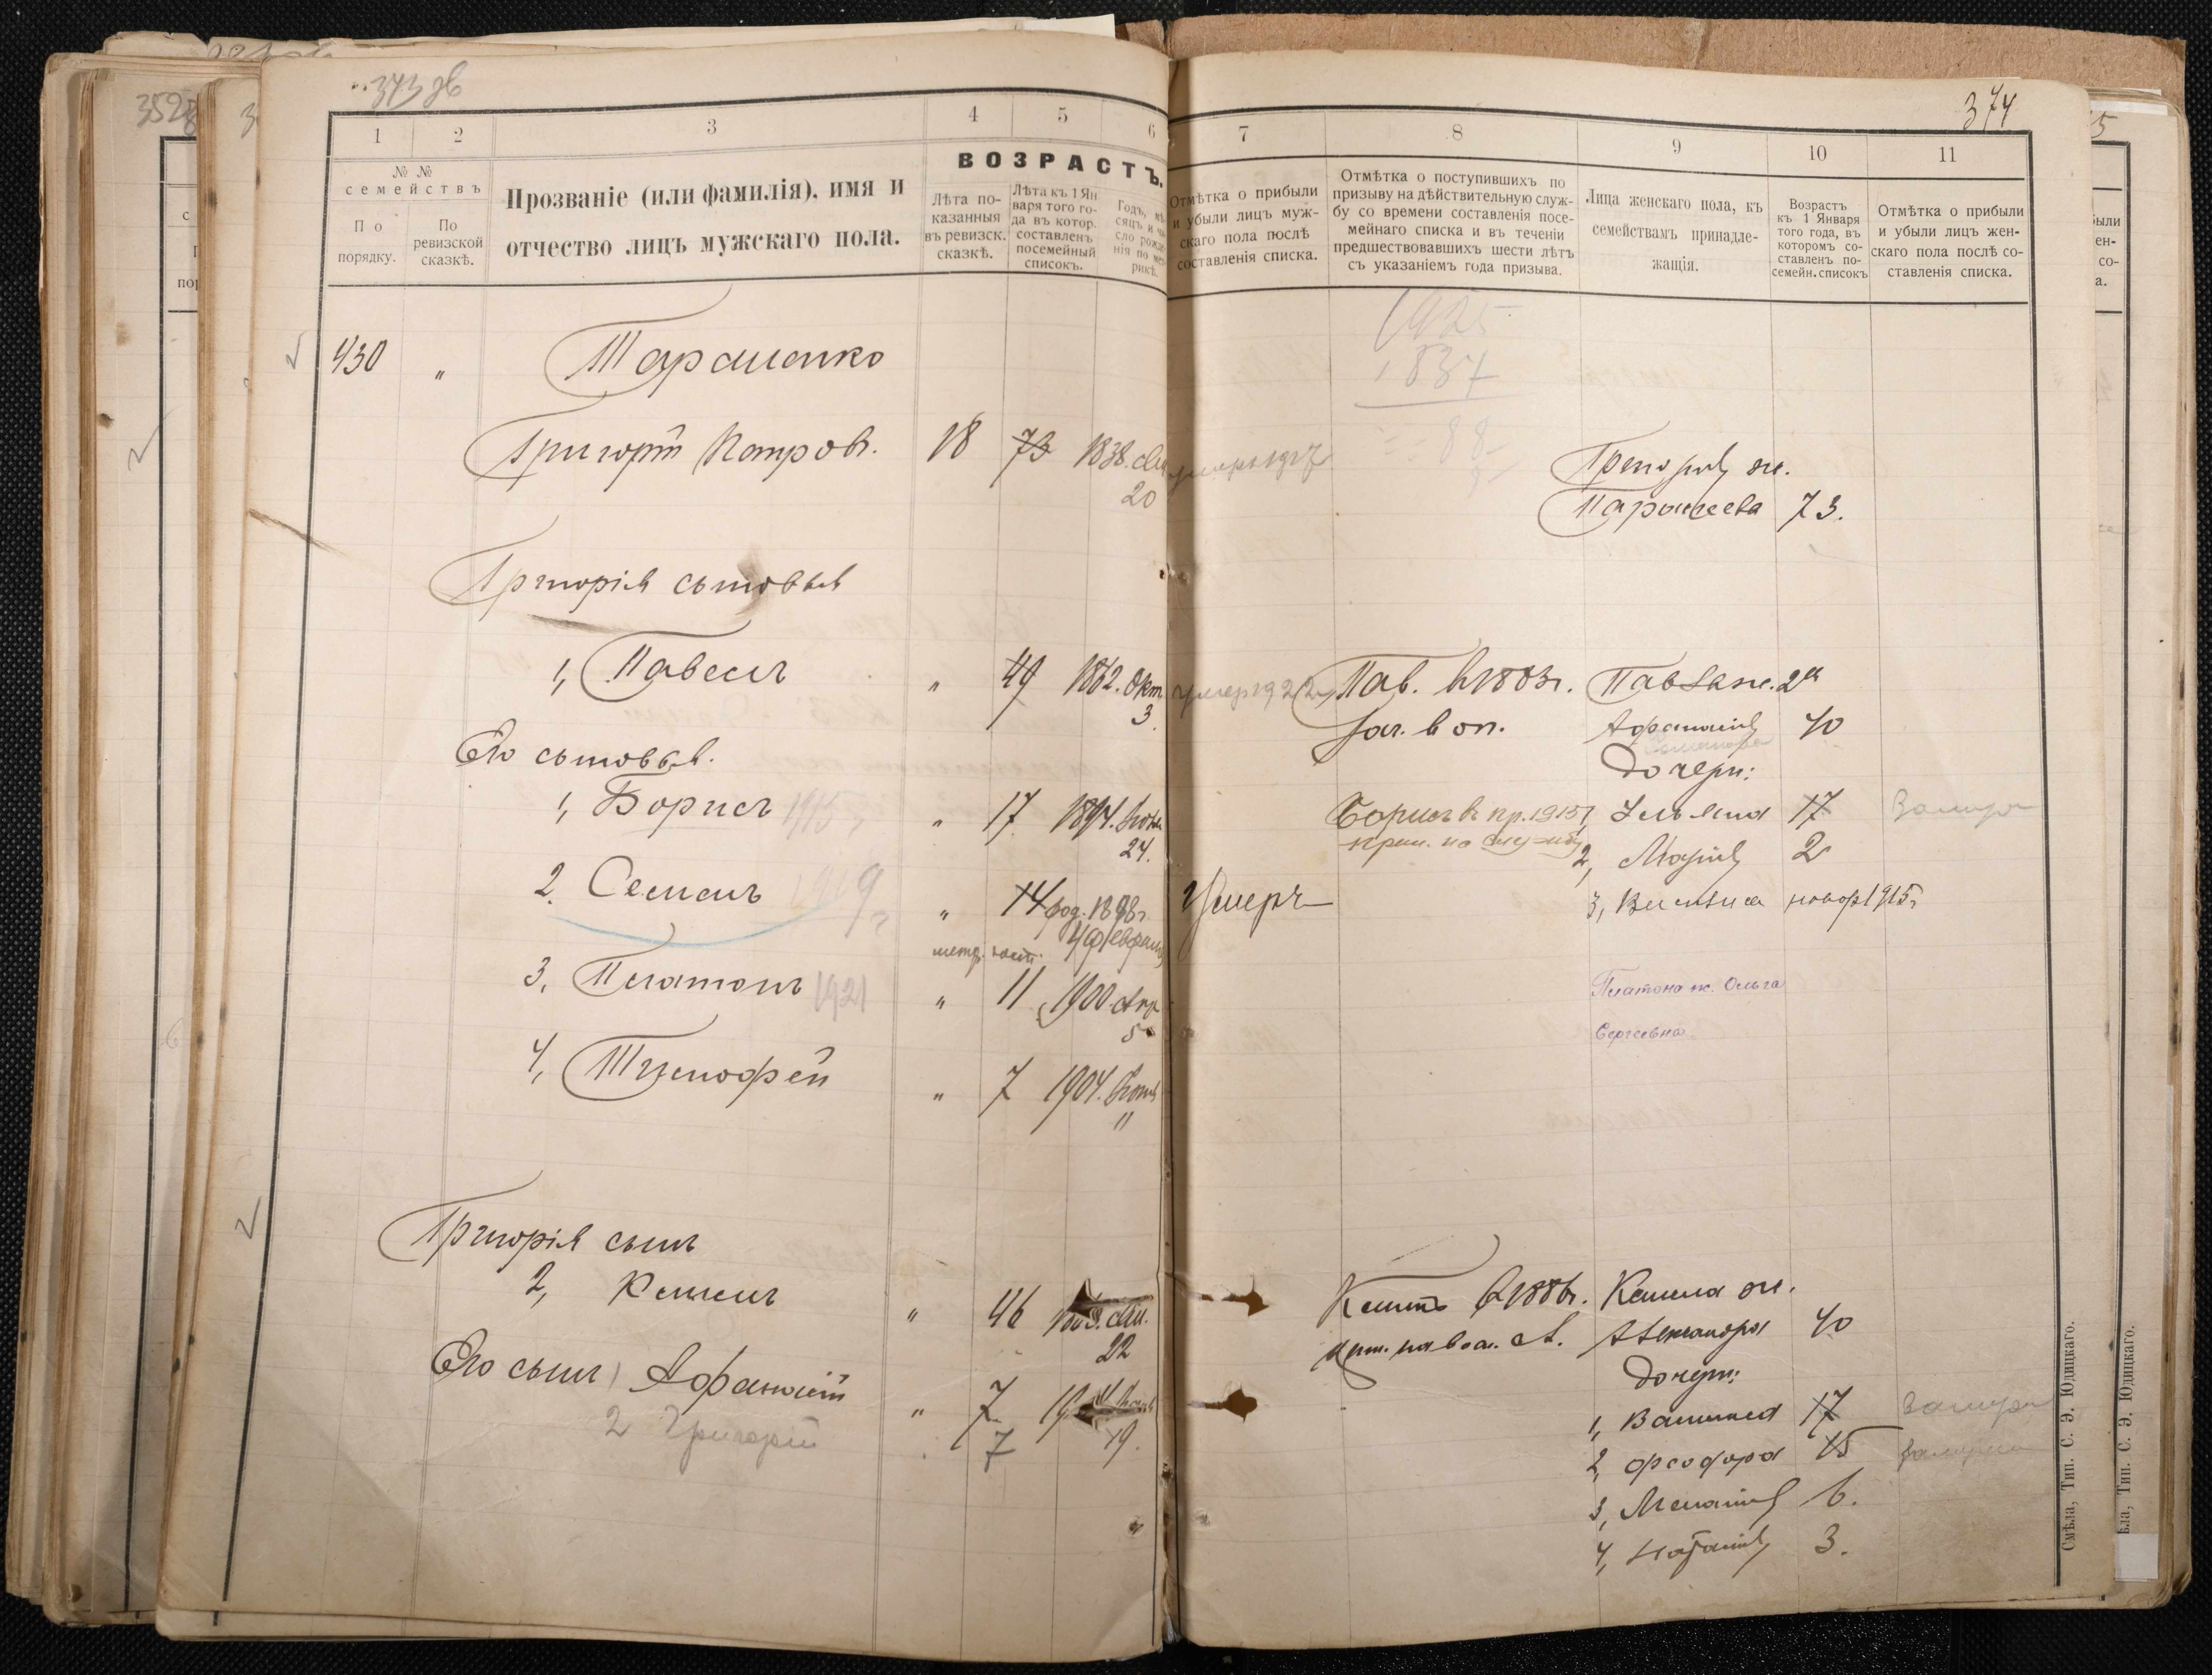 373 об
374
1
2
3
4
5
6
7
8
9
10
11
№ №
семействъ
По
порядку.
По
ревизской
сказкѣ.
Прозваніе (или фамилія), имя и
отчество лицъ мужскаго пола.
ВОЗРАСТЪ.
Лѣта по-
казанныя
въ ревизск.
сказкѣ.
Лѣта къ 1 Ян
варя того го-
да въ котор.
составленъ
посемейный
списокъ.
Годъ, мѣ-
сяцъ и чи
сло рожде
нія по мет
рикѣ.
Отмѣтка о прибыли
и убыли лицъ муж-
скаго пола послѣ
составленія списка.
Отмѣтка о поступившихъ по
призыву на дѣйствительную служ-
бу со времени составленія посе-
мейнаго списка и въ теченіи
предшествовавшихъ шести лѣтъ
съ указаніемъ года призыва.
Лица женскаго пола, къ
семействамъ принадле-
жащія.
Возрастъ
къ 1 Января
того года, въ
которомъ со-
ставленъ по-
семейн. списокъ
Отмѣтка о прибыли
и убыли лицъ жен-
скаго пола послѣ со-
ставленія списка.
430 " Тараненко
1925
1837
= 88
Григорій Петров. 18 73 1838. 20 умеръ 1917
Григорія ж.
Параскева 73.
Григорія сыновья
1, Павелъ " 49 1862. Окт. 3. умеръ 1922 Пав. в 1883г. Павла ж. 2я
зач. в оп. Афанасія 40
Его сыновья. Дочери:
1, Борисъ 1915 " 17 1894. Ноя 24. Борисъ в пр. 1915 1, Ульяна 17 Замуж
прин. на службу 2, Марія 2
2. Семенъ 1919 " 14 род. 1898г. 4 Февраля Умеръ 3, Василиса новор 1915г
метр. 
3, Платонъ 1921 " 11 1900 Апр 5 Платона ж. Ольга
Сергеевна
4, Тимофей " 7 1904. "
Григорія сынъ
2, " 46 22 в 1886г. ж.
Александра 40
Его сынъ 1 Афанасій " 7 19. Дочери:
2 Григорій 7 1, 17 Замуж
2, Феодора 15 замуж
3, Меланія 6.
4, Наталія 3.
Смѣла, Тип. С. Э. Юдицкаго.
352